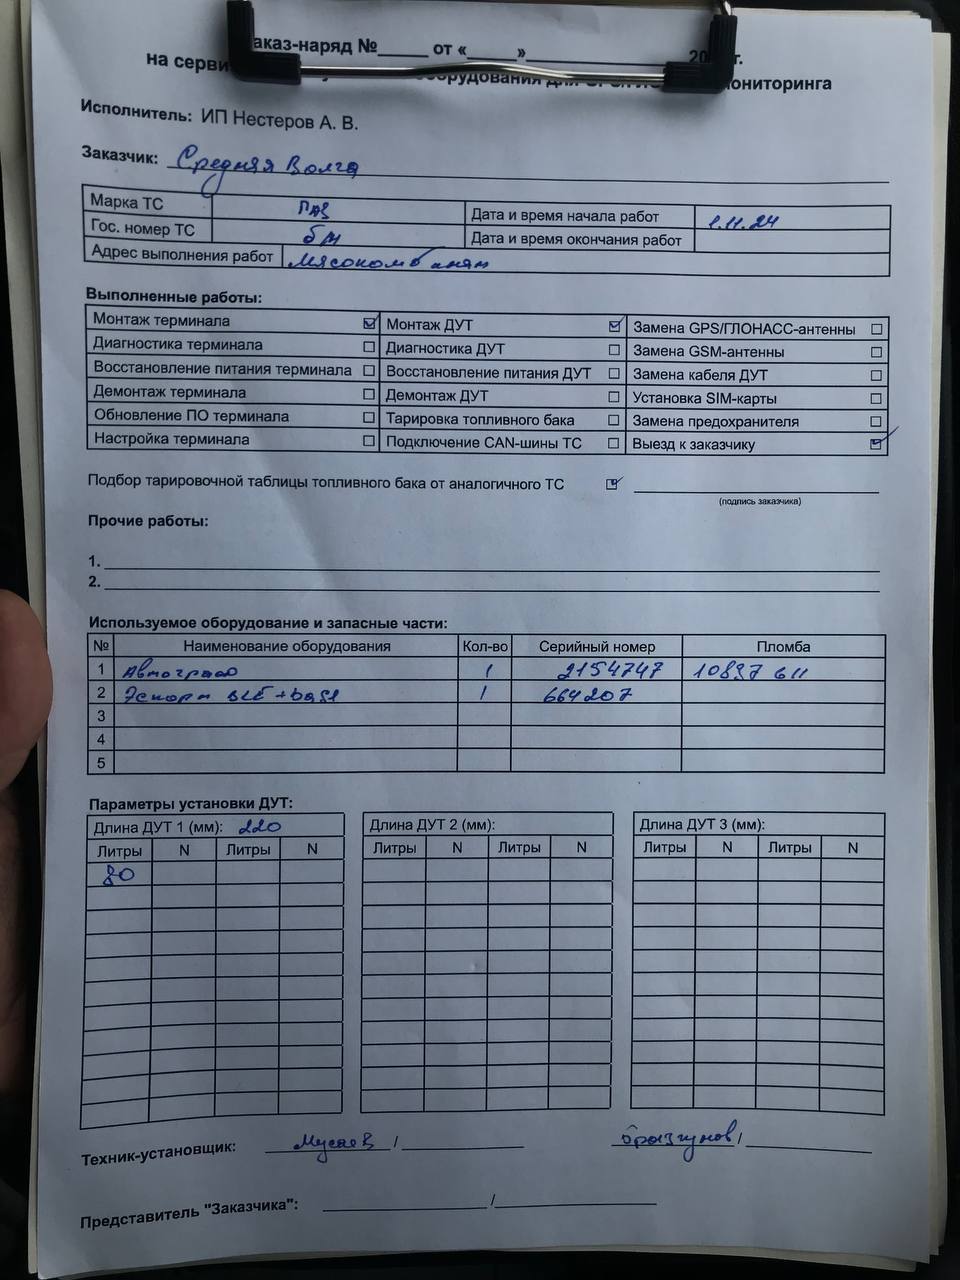 аказ-наряд №_____ от «____»____________ 20 г.
на серви оборудования для мониторинга
Исполнитель: ИП Нестеров А. В.
Заказчик: Средняя Волга
Марка ТС ПАЗ Дата и время начала работ 1.11.24
Гос. номер ТС б/н Дата и время окончания работ
Адрес выполнения работ
Выполненные работы:
Монтаж терминала ☑ Монтаж ДУТ ☑ Замена GPS/ГЛОНАСС-антенны ☐
Диагностика терминала ☐ Диагностика ДУТ ☐ Замена GSM-антенны ☐
Восстановление питания терминала ☐ Восстановление питания ДУТ ☐ Замена кабеля ДУТ ☐
Демонтаж терминала ☐ Демонтаж ДУТ ☐ Установка SIM-карты ☐
Обновление ПО терминала ☐ Тарировка топливного бака ☐ Замена предохранителя ☐
Настройка терминала ☐ Подключение CAN-шины ТС ☐ Выезд к заказчику ☑
Подбор тарировочной таблицы топливного бака от аналогичного ТС ☑
(подпись заказчика)
Прочие работы:
1.
2.
Используемое оборудование и запасные части:
№ Наименование оборудования Кол-во Серийный номер Пломба
1 Автограф 1 2154747 10897 611
2 Эскорт BLE + base 1 664207
3
4
5
Параметры установки ДУТ:
Длина ДУТ 1 (мм): 220 Длина ДУТ 2 (мм): Длина ДУТ 3 (мм):
Литры N Литры N Литры N Литры N Литры N Литры N
80
Техник-установщик: Мусаев / Брызгунов /
Представитель "Заказчика": /